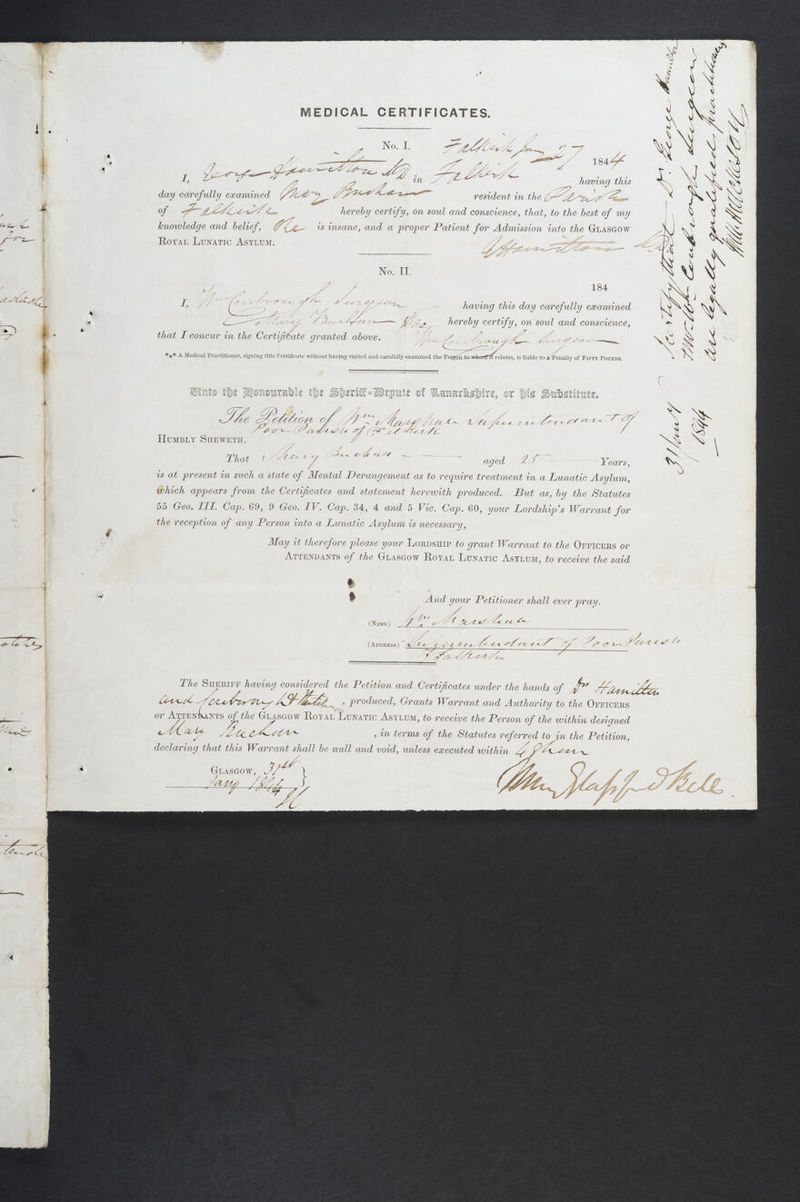 MEDICAL CERTIFICATES.
No. I. Falkirk Jany 27 1844
I, George Hamilton MD in Falkirk having this
day carefully examined Mary Buchan resident in the Parish
of Falkirk hereby certify, on soul and conscience, that, to the best of my
knowledge and belief, She is insane, and a proper Patient for Admission into the GLASGOW
ROYAL LUNATIC ASYLUM.
GHamilton MD
No. II.
184
I, Wm Conbrough Surgeon having this day carefully examined
Mary Buchan hereby certify, on soul and conscience,
that I concur in the Certificate granted above. Wm Conbrough Surgeon
*** A Medical Practitioner, signing this Certificate without having visited and carefully examined the Person to whom it relates, is liable to a Penalty of FIFTY POUNDS.
Unto the Honourable the Sheriff-Depute of Lanarkshire, or his Substitute.
The Petition of Wm Marshall Superintendant of
Poor Parish of Falkirk
HUMBLY SHEWETH,
That Mary Buchan aged 25 Years,
is at present in such a state of Mental Derangement as to require treatment in a Lunatic Asylum,
which appears from the Certificates and statement herewith produced. But as, by the Statutes
55 Geo. III. Cap. 69, 9 Geo. IV. Cap. 34, 4 and 5 Vic. Cap. 60, your Lordship's Warrant for
the reception of any Person into a Lunatic Asylum is necessary,
May it therefore please your LORDSHIP to grant Warrant to the OFFICERS or
ATTENDANTS of the GLASGOW ROYAL LUNATIC ASYLUM, to receive the said
And your Petitioner shall ever pray.
(NAME) Wm Marshall
(ADDRESS) Superintendant of Poor Parish
Falkirk
The SHERIFF having considered the Petition and Certificates under the hands of Drs Hamilton
and Conbrough , produced, Grants Warrant and Authority to the OFFICERS
or ATTENDANTS of the GLASGOW ROYAL LUNATIC ASYLUM, to receive the Person of the within designed
Mary Buchan , in terms of the Statutes referred to in the Petition,
declaring that this Warrant shall be null and void, unless executed within
GLASGOW, 31st
Jany 1844
Glassford Bell
31 Jany 1844
I certify that Dr. George Hamilton
Mr Wm Conbrough Surgeon
are legally qualified practitioners
Wm Hutcheson